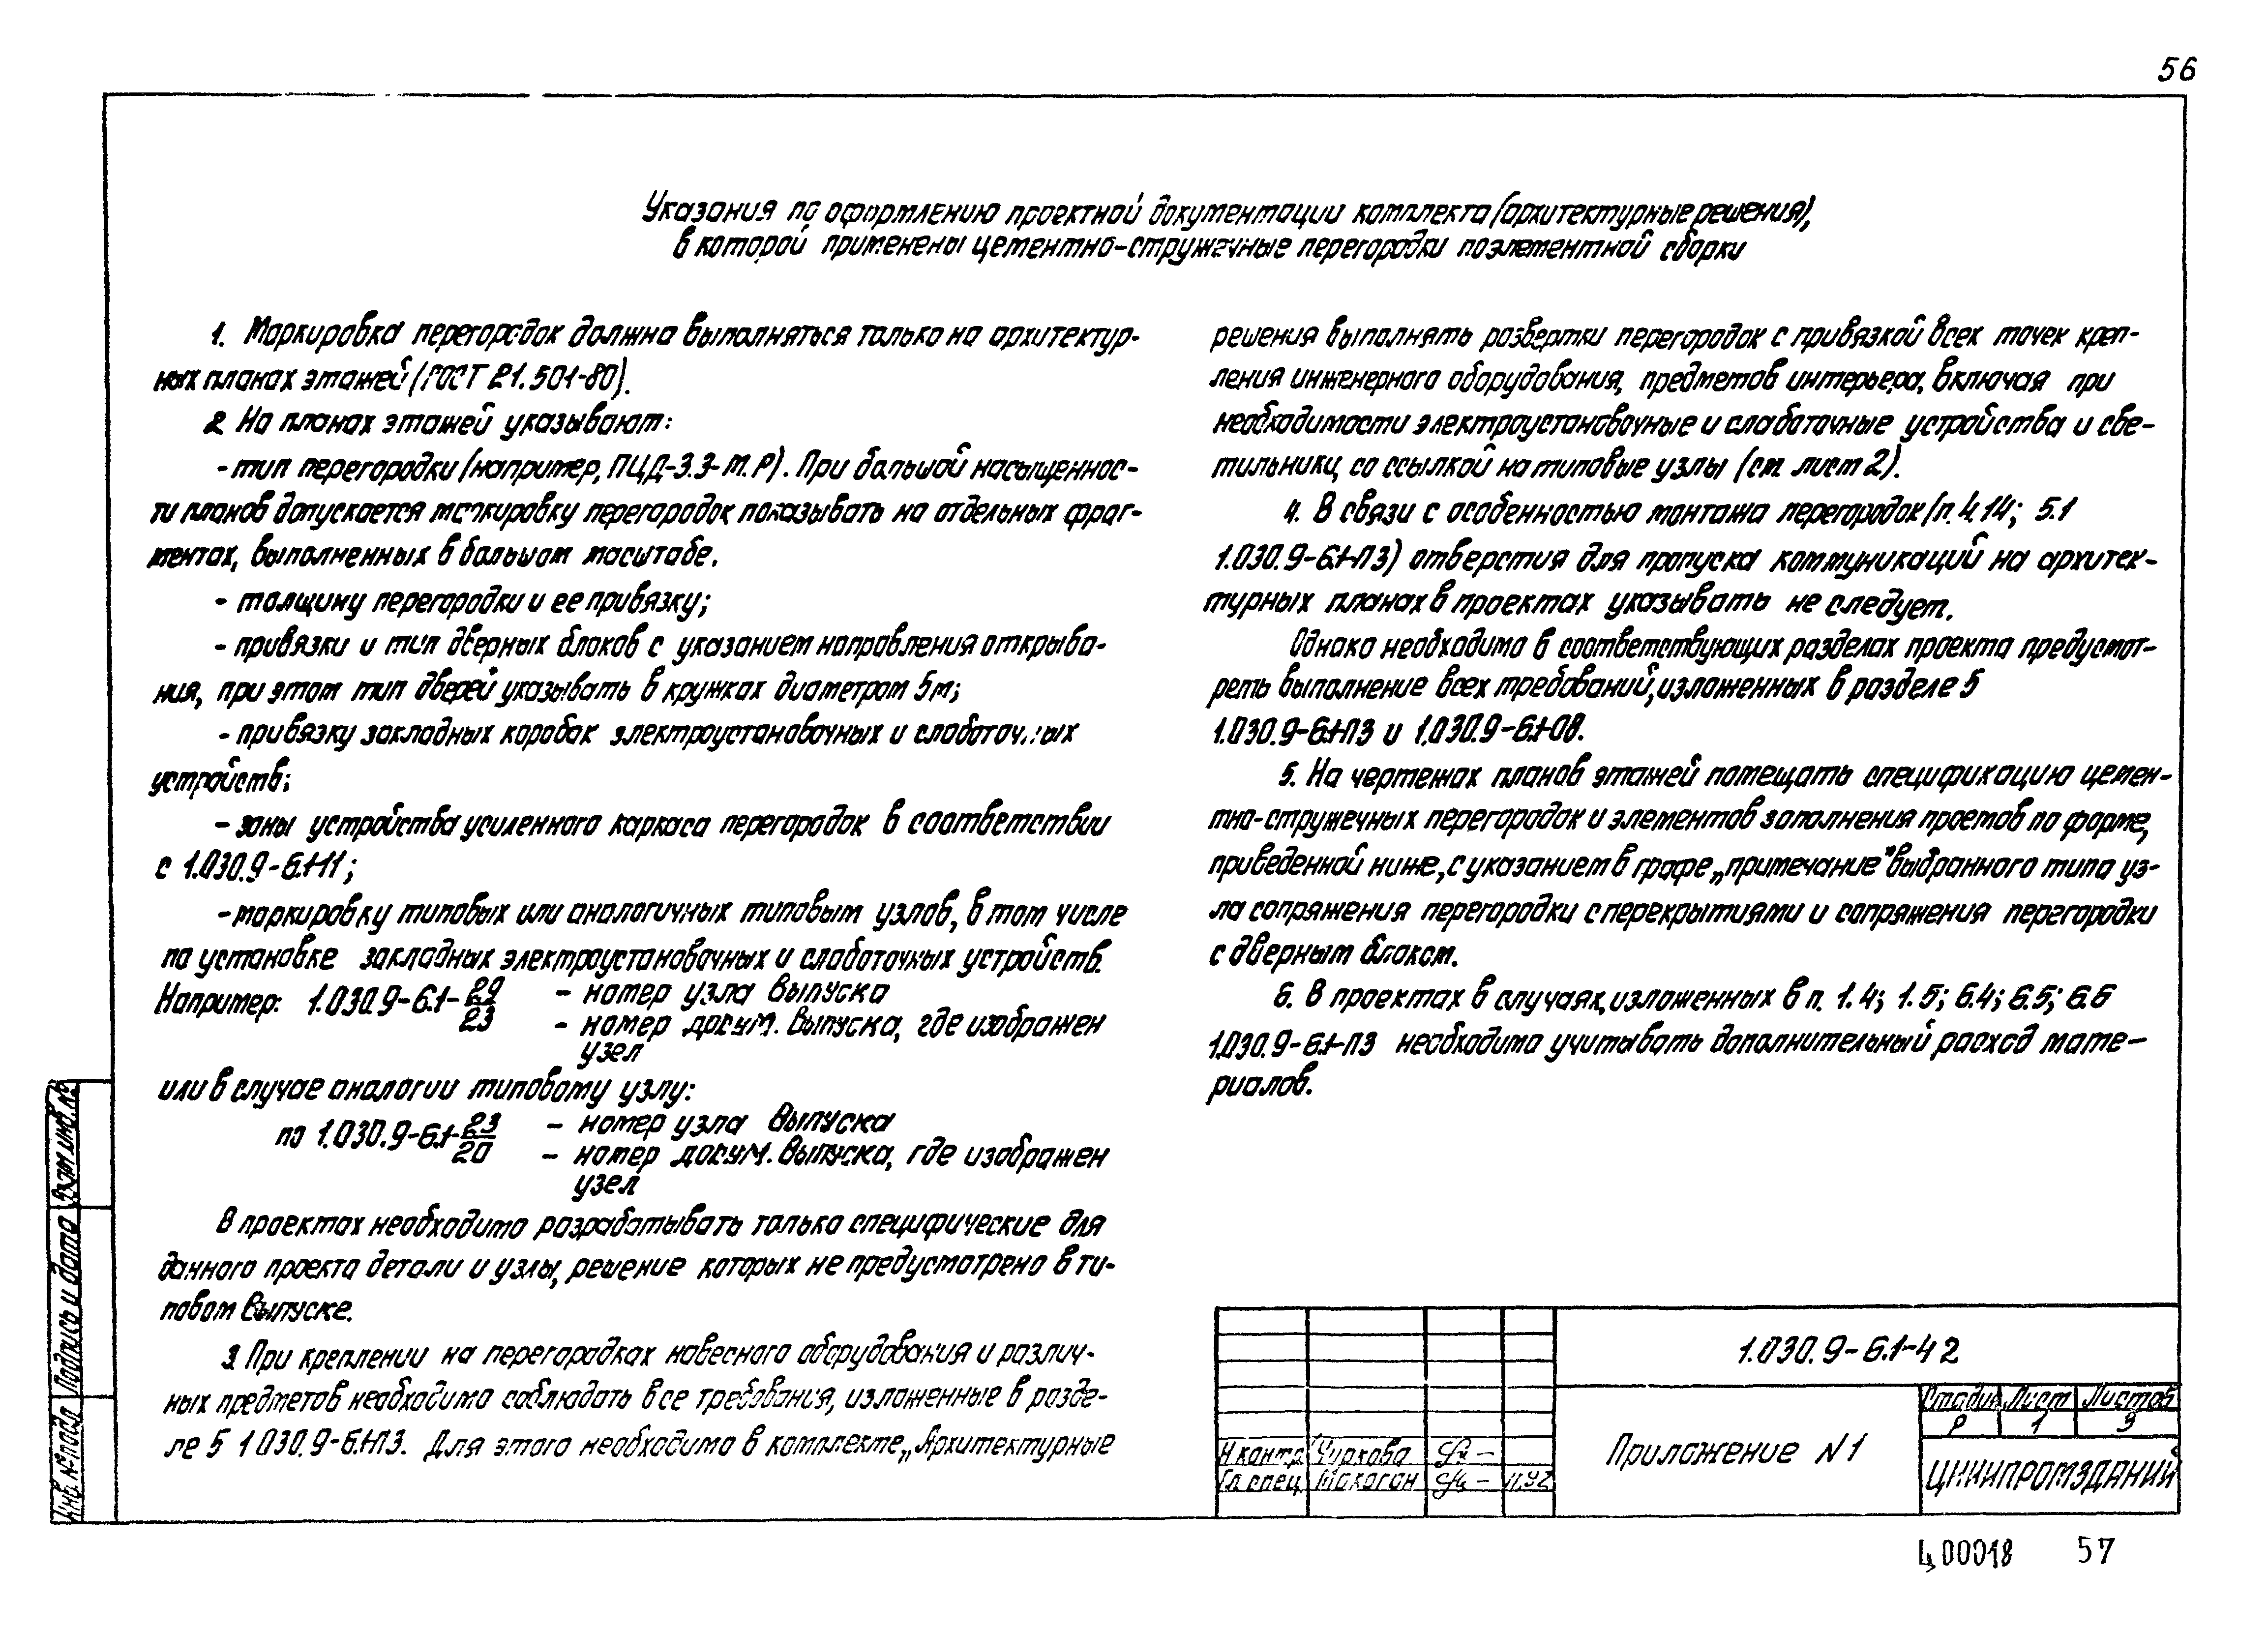 56
Указания по оформлению проектной документации комплекта (архитектурные решения),
в которой применены цементно-стружечные перегородки поэлементной сборки
1. Маркировка перегородок должна выполняться только на архитектур-
ных планах этажей (ГОСТ 21.501-80).
2 На планах этажей указывают:
- тип перегородки (например, ПЦД-3.3-М.Р). При большой насыщеннос-
ти планов допускается маркировку перегородок показывать на отдельных фраг-
ментах, выполненных в большом масштабе.
- толщину перегородки и ее привязку;
- привязки и тип дверных блоков с указанием направления открыва-
ния, при этом тип дверей указывать в кружках диаметром 5м;
- привязку закладных коробок электроустановочных и слаботочных
устройств;
- зоны устройства усиленного каркаса перегородок в соответствии
с 1.030.9-6.1-11;
- маркировку типовых или аналогичных типовым узлов, в том числе
по установке закладных электроустановочных и слаботочных устройств.
Например: 1.030.9-6.1- 29/23 - номер узла выпуска
- номер докум. выпуска, где изображен
узел
или в случае аналогии типовому узлу:
по 1.030.9-6.1- 23/20 - номер узла выпуска
- номер докум. выпуска, где изображен
узел
В проектах необходимо разрабатывать только специфические для
данного проекта детали и узлы, решение которых не предусмотрено в ти-
повом выпуске.
3. При креплении на перегородках навесного оборудования и различ-
ных предметов необходимо соблюдать все требования, изложенные в разде-
ле 5 1.030.9-6.1-ПЗ. Для этого необходимо в комплекте „Архитектурные
решения выполнять развертки перегородок с привязкой всех точек креп-
ления инженерного оборудования, предметов интерьера, включая при
необходимости электроустановочные и слаботочные устройства и све-
тильники со ссылкой на типовые узлы (см. лист 2).
4. В связи с особенностью монтажа перегородок (п. 4.14; 5.1
1.030.9-6.1-ПЗ) отверстия для пропуска коммуникаций на архитек-
турных планах в проектах указывать не следует.
Однако необходимо в соответствующих разделах проекта предусмот-
реть выполнение всех требований, изложенных в разделе 5
1.030.9-6.1-ПЗ и 1.030.9-6.1-08.
5. На чертежах планов этажей помещать спецификацию цемен-
тно-стружечных перегородок и элементов заполнения проемов по форме,
приведенной ниже, с указанием в графе „примечание" выбранного типа уз-
ла сопряжения перегородки с перекрытиями и сопряжения перегородки
с дверным блоком.
6. В проектах в случаях, изложенных в п. 1.4; 1.5; 6.4; 6.5; 6.6
1.030.9-6.1-ПЗ необходимо учитывать дополнительный расход мате-
риалов.
Взам. инв. №
Подпись и дата
Инв. № подл
1.030.9-6.1-42
Стадия Лист Листов
Р 1 3
Приложение N1
ЦНИИПРОМЗДАНИЙ
Н.контр. Чиркова
Гл. спец. Макоган 11.92
Ц00018 57